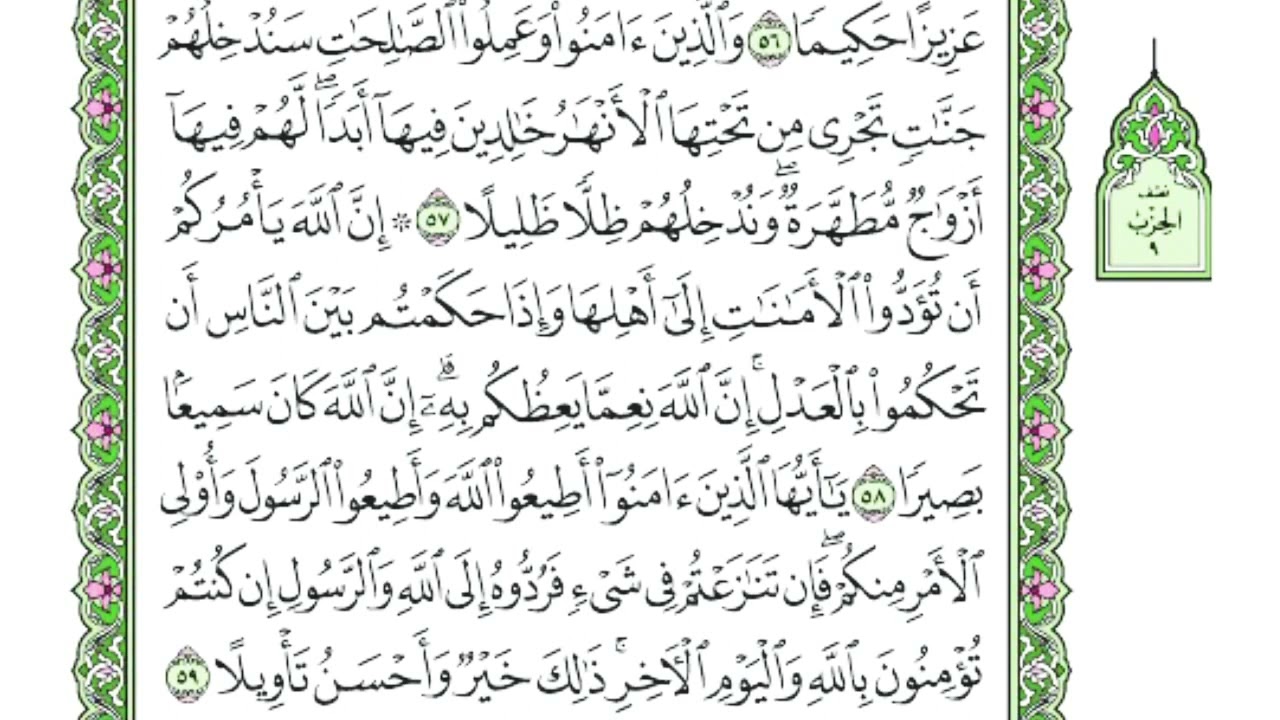 عَزِيزًا حَكِيمًا ٥٦ وَٱلَّذِينَ ءَامَنُوا۟ وَعَمِلُوا۟ ٱلصَّٰلِحَٰتِ سَنُدْخِلُهُمْ
جَنَّٰتٍ تَجْرِى مِن تَحْتِهَا ٱلْأَنْهَٰرُ خَٰلِدِينَ فِيهَآ أَبَدًا ۖ لَّهُمْ فِيهَآ
أَزْوَٰجٌ مُّطَهَّرَةٌ ۖ وَنُدْخِلُهُمْ ظِلًّا ظَلِيلًا ٥٧ ۞ إِنَّ ٱللَّهَ يَأْمُرُكُمْ
أَن تُؤَدُّوا۟ ٱلْأَمَٰنَٰتِ إِلَىٰٓ أَهْلِهَا وَإِذَا حَكَمْتُم بَيْنَ ٱلنَّاسِ أَن
تَحْكُمُوا۟ بِٱلْعَدْلِ ۚ إِنَّ ٱللَّهَ نِعِمَّا يَعِظُكُم بِهِۦٓ ۗ إِنَّ ٱللَّهَ كَانَ سَمِيعًۢا
بَصِيرًا ٥٨ يَٰٓأَيُّهَا ٱلَّذِينَ ءَامَنُوٓا۟ أَطِيعُوا۟ ٱللَّهَ وَأَطِيعُوا۟ ٱلرَّسُولَ وَأُو۟لِى
ٱلْأَمْرِ مِنكُمْ ۖ فَإِن تَنَٰزَعْتُمْ فِى شَىْءٍ فَرُدُّوهُ إِلَى ٱللَّهِ وَٱلرَّسُولِ إِن كُنتُمْ
تُؤْمِنُونَ بِٱللَّهِ وَٱلْيَوْمِ ٱلْءَاخِرِ ۚ ذَٰلِكَ خَيْرٌ وَأَحْسَنُ تَأْوِيلًا ٥٩
نِصْف
الحِزْب
٩